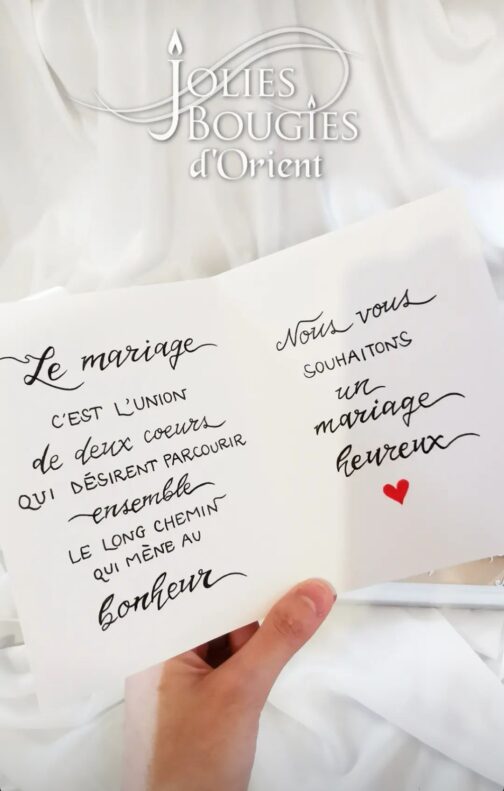 Jolies
Bougies
d'Orient
Le mariage
C'EST L'UNION
de deux coeurs
QUI DÉSIRENT PARCOURIR
ensemble
LE LONG CHEMIN
QUI MÈNE AU
bonheur
Nous vous
SOUHAITONS
un
mariage
heureux